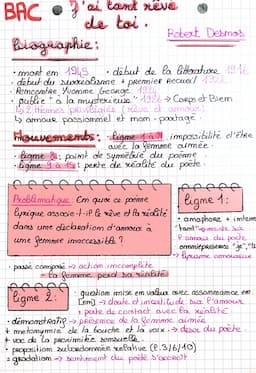 BAC
J'ai tant rêvé
de toi.
Robert Desnos
Biographie:
• mort en 1945 • début de la littérature 1916
• début du surréalisme + premier recueil
• Rencontre Yvonne George 1924
• publie "à la mystérieuse" 1926 → Corps et Bien
↳ 2 thèmes principales (rêve et amour)
↳ amour passionnel et non-partagé
Mouvements:
ligne 1 à : impossibilité d'être
avec la femme aimée.
• ligne 8: point de symétrie du poème
• ligne 9 à : perte de réalité du poète.
Problématique: En quoi ce poème
lyrique associe-t-il le rêve et la réalité
dans une déclaration d'amour à
une femme inaccessible ?
Ligne 1:
• anaphore +
"tant" →
l'amour du poète
• omniprésence "je", "tu"
↳ lyrisme amoureux
• passé composé → action incomplète
→ la femme perd sa réalité
Ligne 2:
• question mise en valeur avec assonnance en
[em] → doute et incertitude sur l'amour
+ perte de contact avec la réalité
• démonstratif → présence de la femme aimée
+ métonymie de la bouche et la voix → désir du poète
+ voc de la proximité sensuelle
• proposition subordonnée relative (l.3/6/10)
↳ gradation → sentiment du poète s'accroît